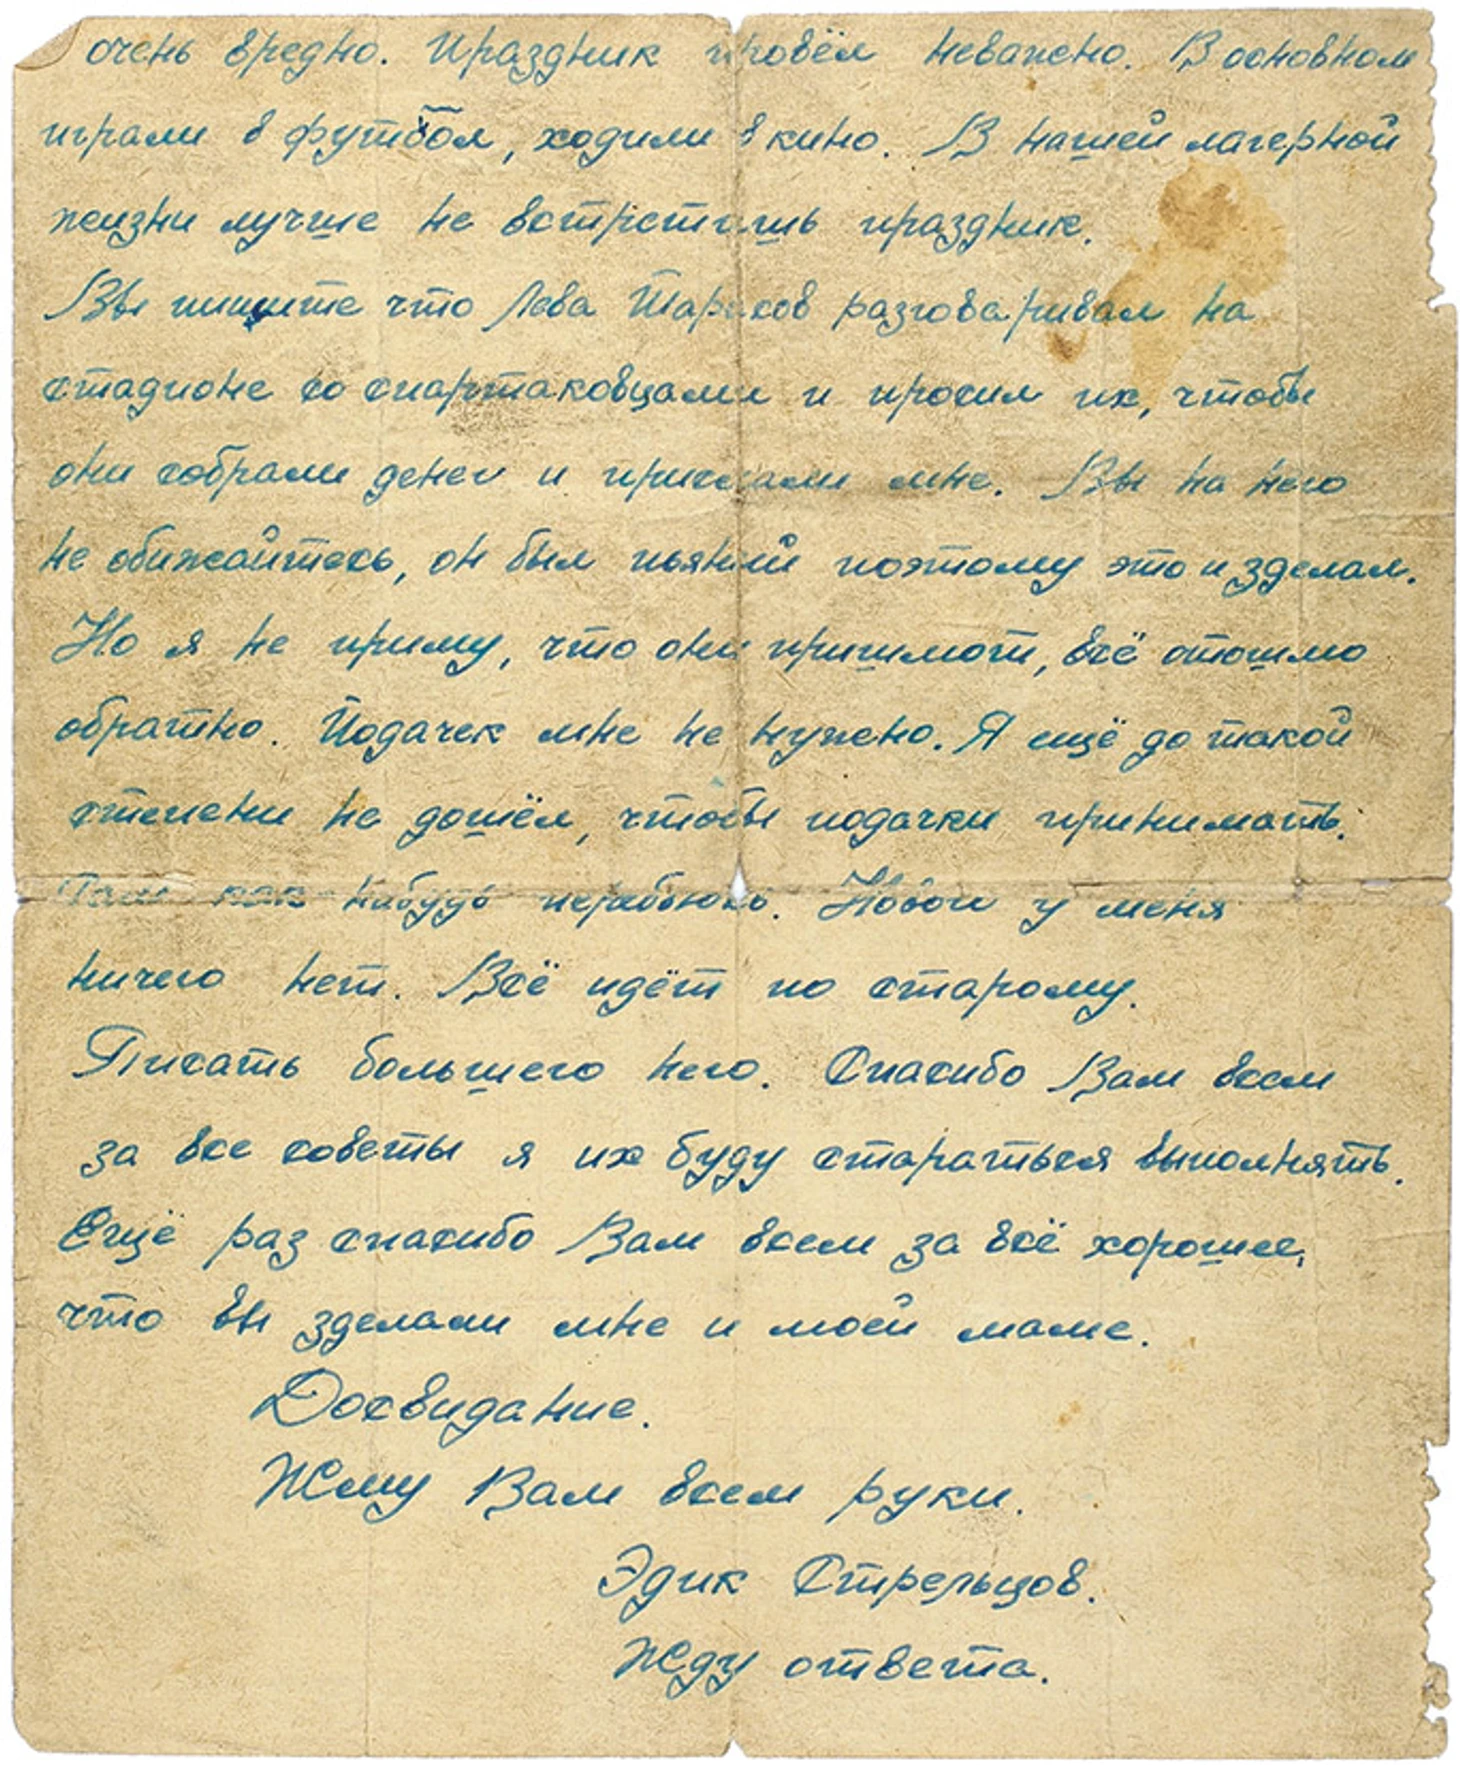 очень вредно. Праздник провёл неважно. В основном
играли в футбол, ходили в кино. В нашей лагерной
жизни лучше не встретишь праздник.
Вы пишите что Лёва Тарасов разговаривал на
стадионе со спартаковцами и просил их, чтобы
они собрали денег и прислали мне. Вы на него
не обижайтесь, он был пьяный поэтому это и зделал.
Но я не приму, что они пришлют, всё отошлю
обратно. Подачек мне не нужно. Я ещё до такой
степени не дошёл, чтобы подачки принимать.
как-нибудь перебьюсь. Новои у меня
ничего нет. Всё идёт по старому.
Писать большего него. Спасибо Вам всем
за все советы я их буду стараться выполнять.
Ещё раз спасибо Вам всем за всё хорошее,
что вы зделали мне и моей маме.
Досвидание.
Жму Вам всем руки.
Эдик Стрельцов.
Жду ответа.